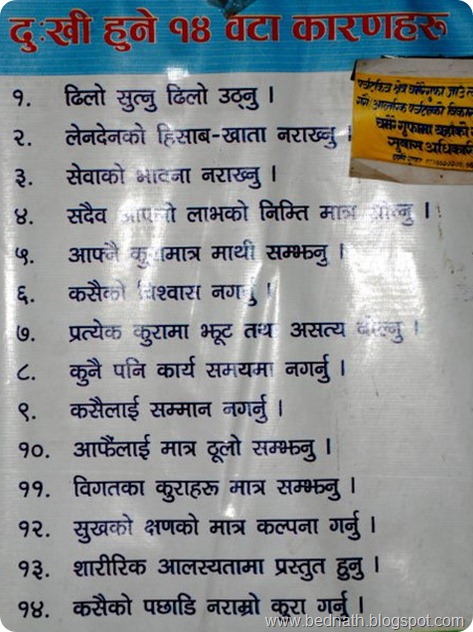 दुःखी हुने १४ वटा कारणहरू
१. ढिलो सुत्नु ढिलो उठ्नु ।
२. लेनदेनको हिसाब-खाता नराख्नु ।
३. सेवाको भावना नराख्नु ।
४. सदैव आफ्नो लाभको निम्ति मात्र सोच्नु ।
५. आफ्नै कुरामात्र माथी सम्झनु ।
६. कसैको विश्वास नगर्नु ।
७. प्रत्येक कुरामा झूट तथा असत्य बोल्नु ।
८. कुनै पनि कार्य समयमा नगर्नु ।
९. कसैलाई सम्मान नगर्नु ।
१०. आफैंलाई मात्र ठूलो सम्झनु ।
११. विगतका कुराहरू मात्र सम्झनु ।
१२. सुखको क्षणको मात्र कल्पना गर्नु ।
१३. शारीरिक आलस्यतामा प्रस्तुत हुनु ।
१४. कसैको पछाडि नराम्रो कूरा गर्नु ।
सुवास अधिकारी
www.bednath.blogspot.com